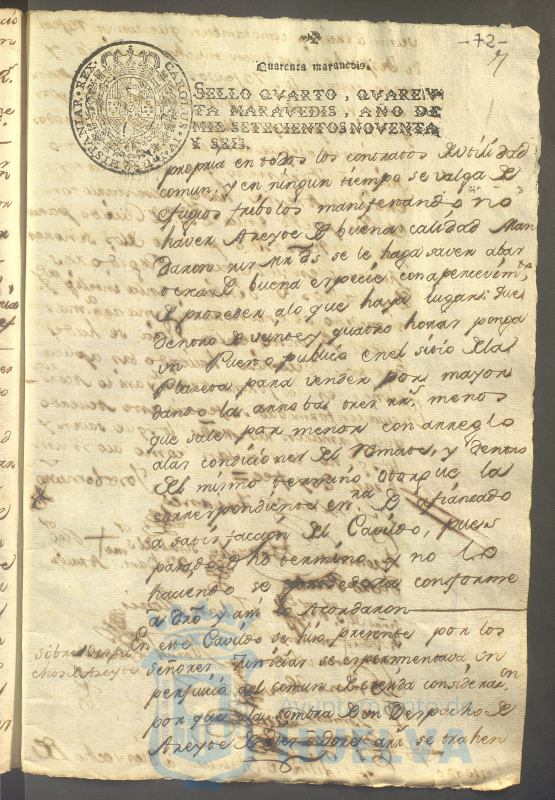 -72-
7
Quarenta maravedis.
SELLO QVARTO, QVAREN
TA MARAVEDIS, AÑO DE
MIL SETECIENTOS NOVENTA
Y SEIS.
CAROLUS IV D G HISPANIAR REX
propria en todos los contratos de utilidad
comun, y en ningun tiempo se valga de
fugios fribolos manifestando no
haver Azeyte de buena calidad Man
daron sus Mrds se le haga saver abas
tezca de buena especie con apercevim.to
de proseder a lo que haya lugar:
dentro de veinte y quatro horas ponga
un Puesto publico en el sitio de la
Plazeta para vender por mayor
dando la arroba tres rr.s menos
que sale por menor con arreglo
a las condiciones del Remate, y dentro
del mismo termino otorgue la
correspondiente afianzado
a satisfaccion del Cavildo, pues
pasado dho termino y no lo
haciendo se procedera conforme
a dro y asi lo Acordaron
sobre despa
cho de Azeyte
En este Cavildo se hizo presente por los
señores Justicias se esperimentava un
perjuicio del comun de
por que a la sombra de un Despacho de
Azeyte se trahen
ayuntamiento de